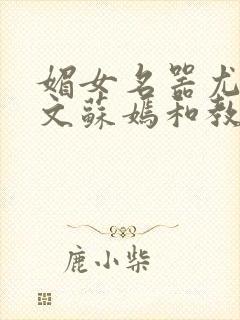 媚女名器尤
文蘇媽和教
鹿小柴